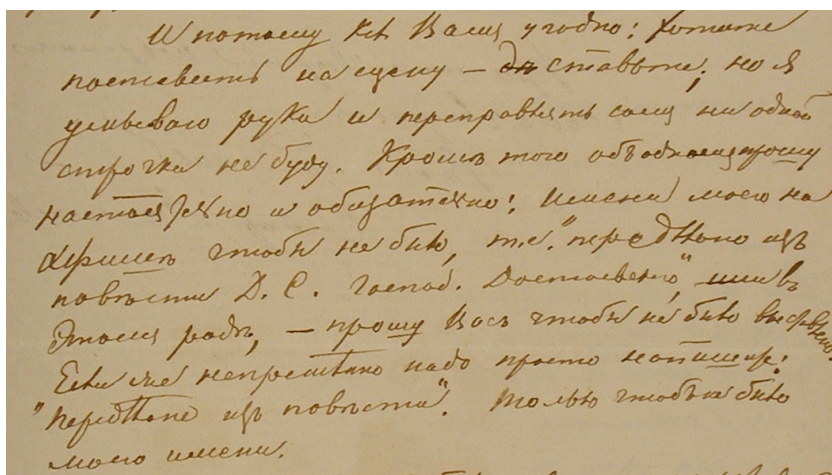 И потому какъ Вамъ угодно: хотите
поставить на сцену – ставьте; но я
умываю руки и переправлять самъ ни одной
строчки не буду. Кромѣ того объ одномъ прошу
настоятельно и обязательно: имени моего на
афишѣ чтобы не было, т.е. "передѣлано изъ
повѣсти Д. С. господ. Достоевскаго", или въ
этомъ родѣ, – прошу Васъ чтобы не было выставлено.
Если же непремѣнно надо просто напишите:
"Передѣлано изъ повѣсти". Только чтобъ не было
моего имени.